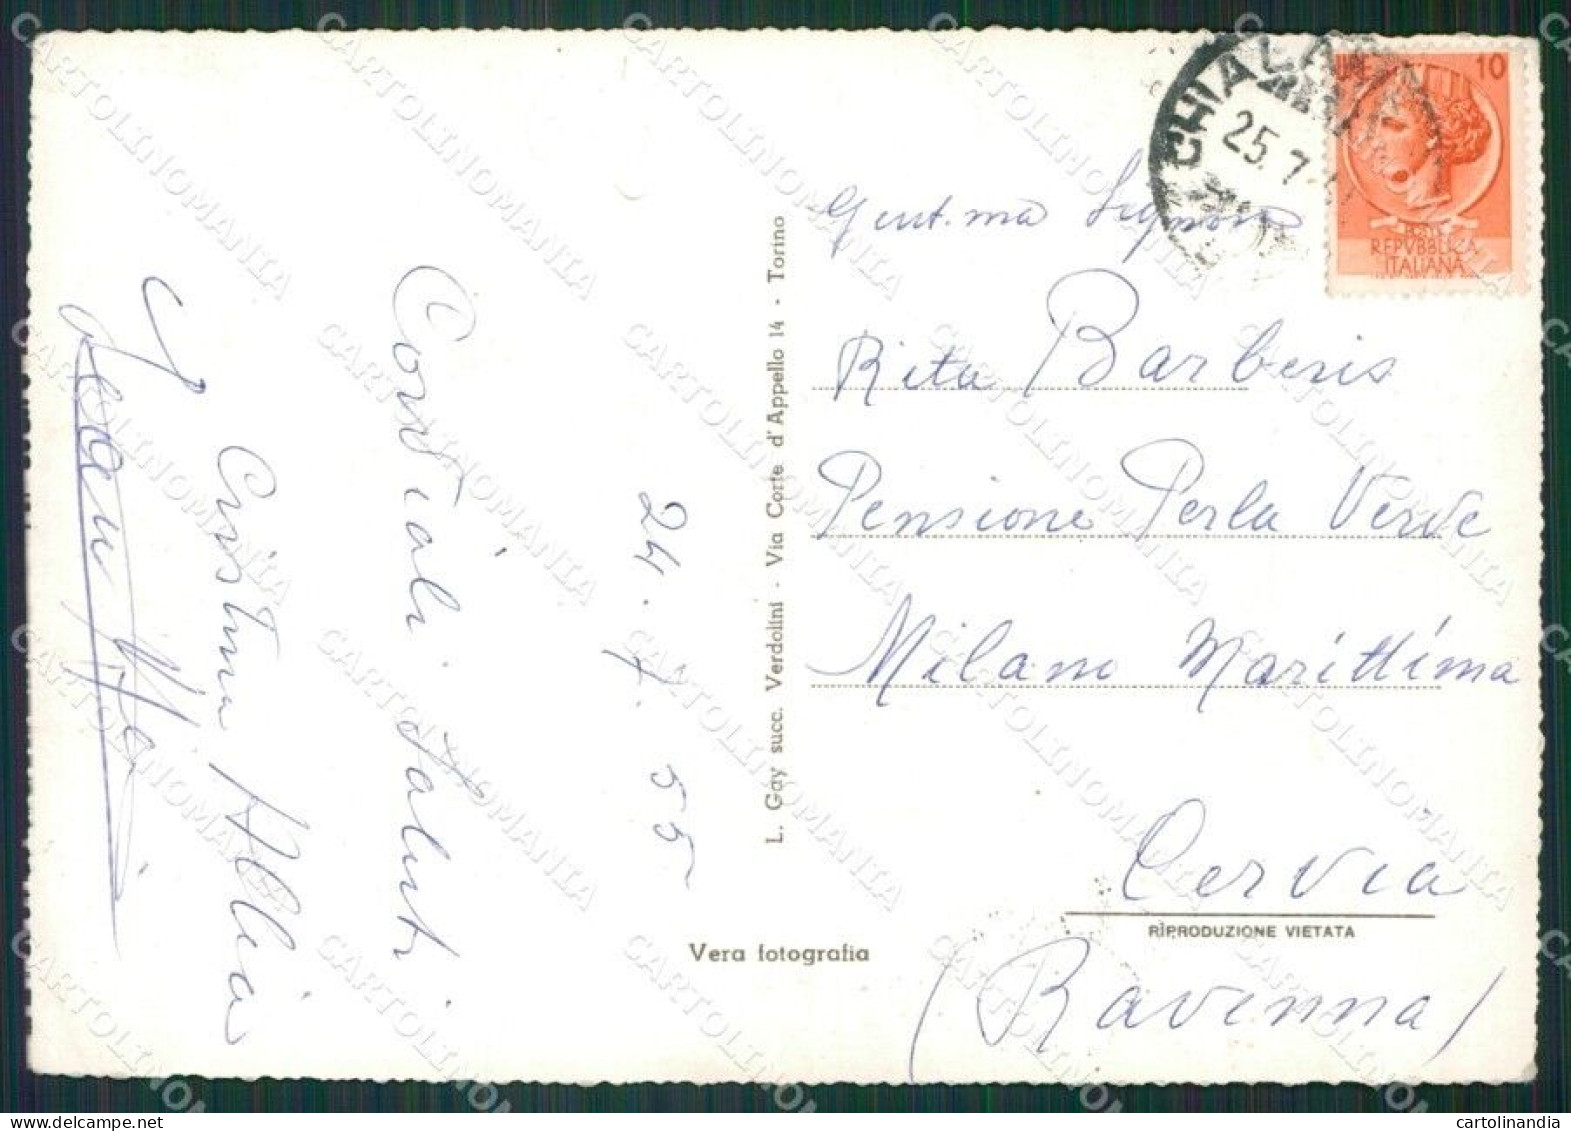 CHIALAM
25.7
10
POSTE
REPVBBLICA
ITALIANA
Gent.ma Signora
Rita Barberis
Pensione Perla Verde
Milano Marittima
Cervia
RIPRODUZIONE VIETATA
(Ravenna)
L. Gay succ. Verdolini - Via Corte d'Appello 14 - Torino
Vera fotografia
24.7.55
Cordiali saluti
Cristina
CARTOLINOMANIA
cartolinandia